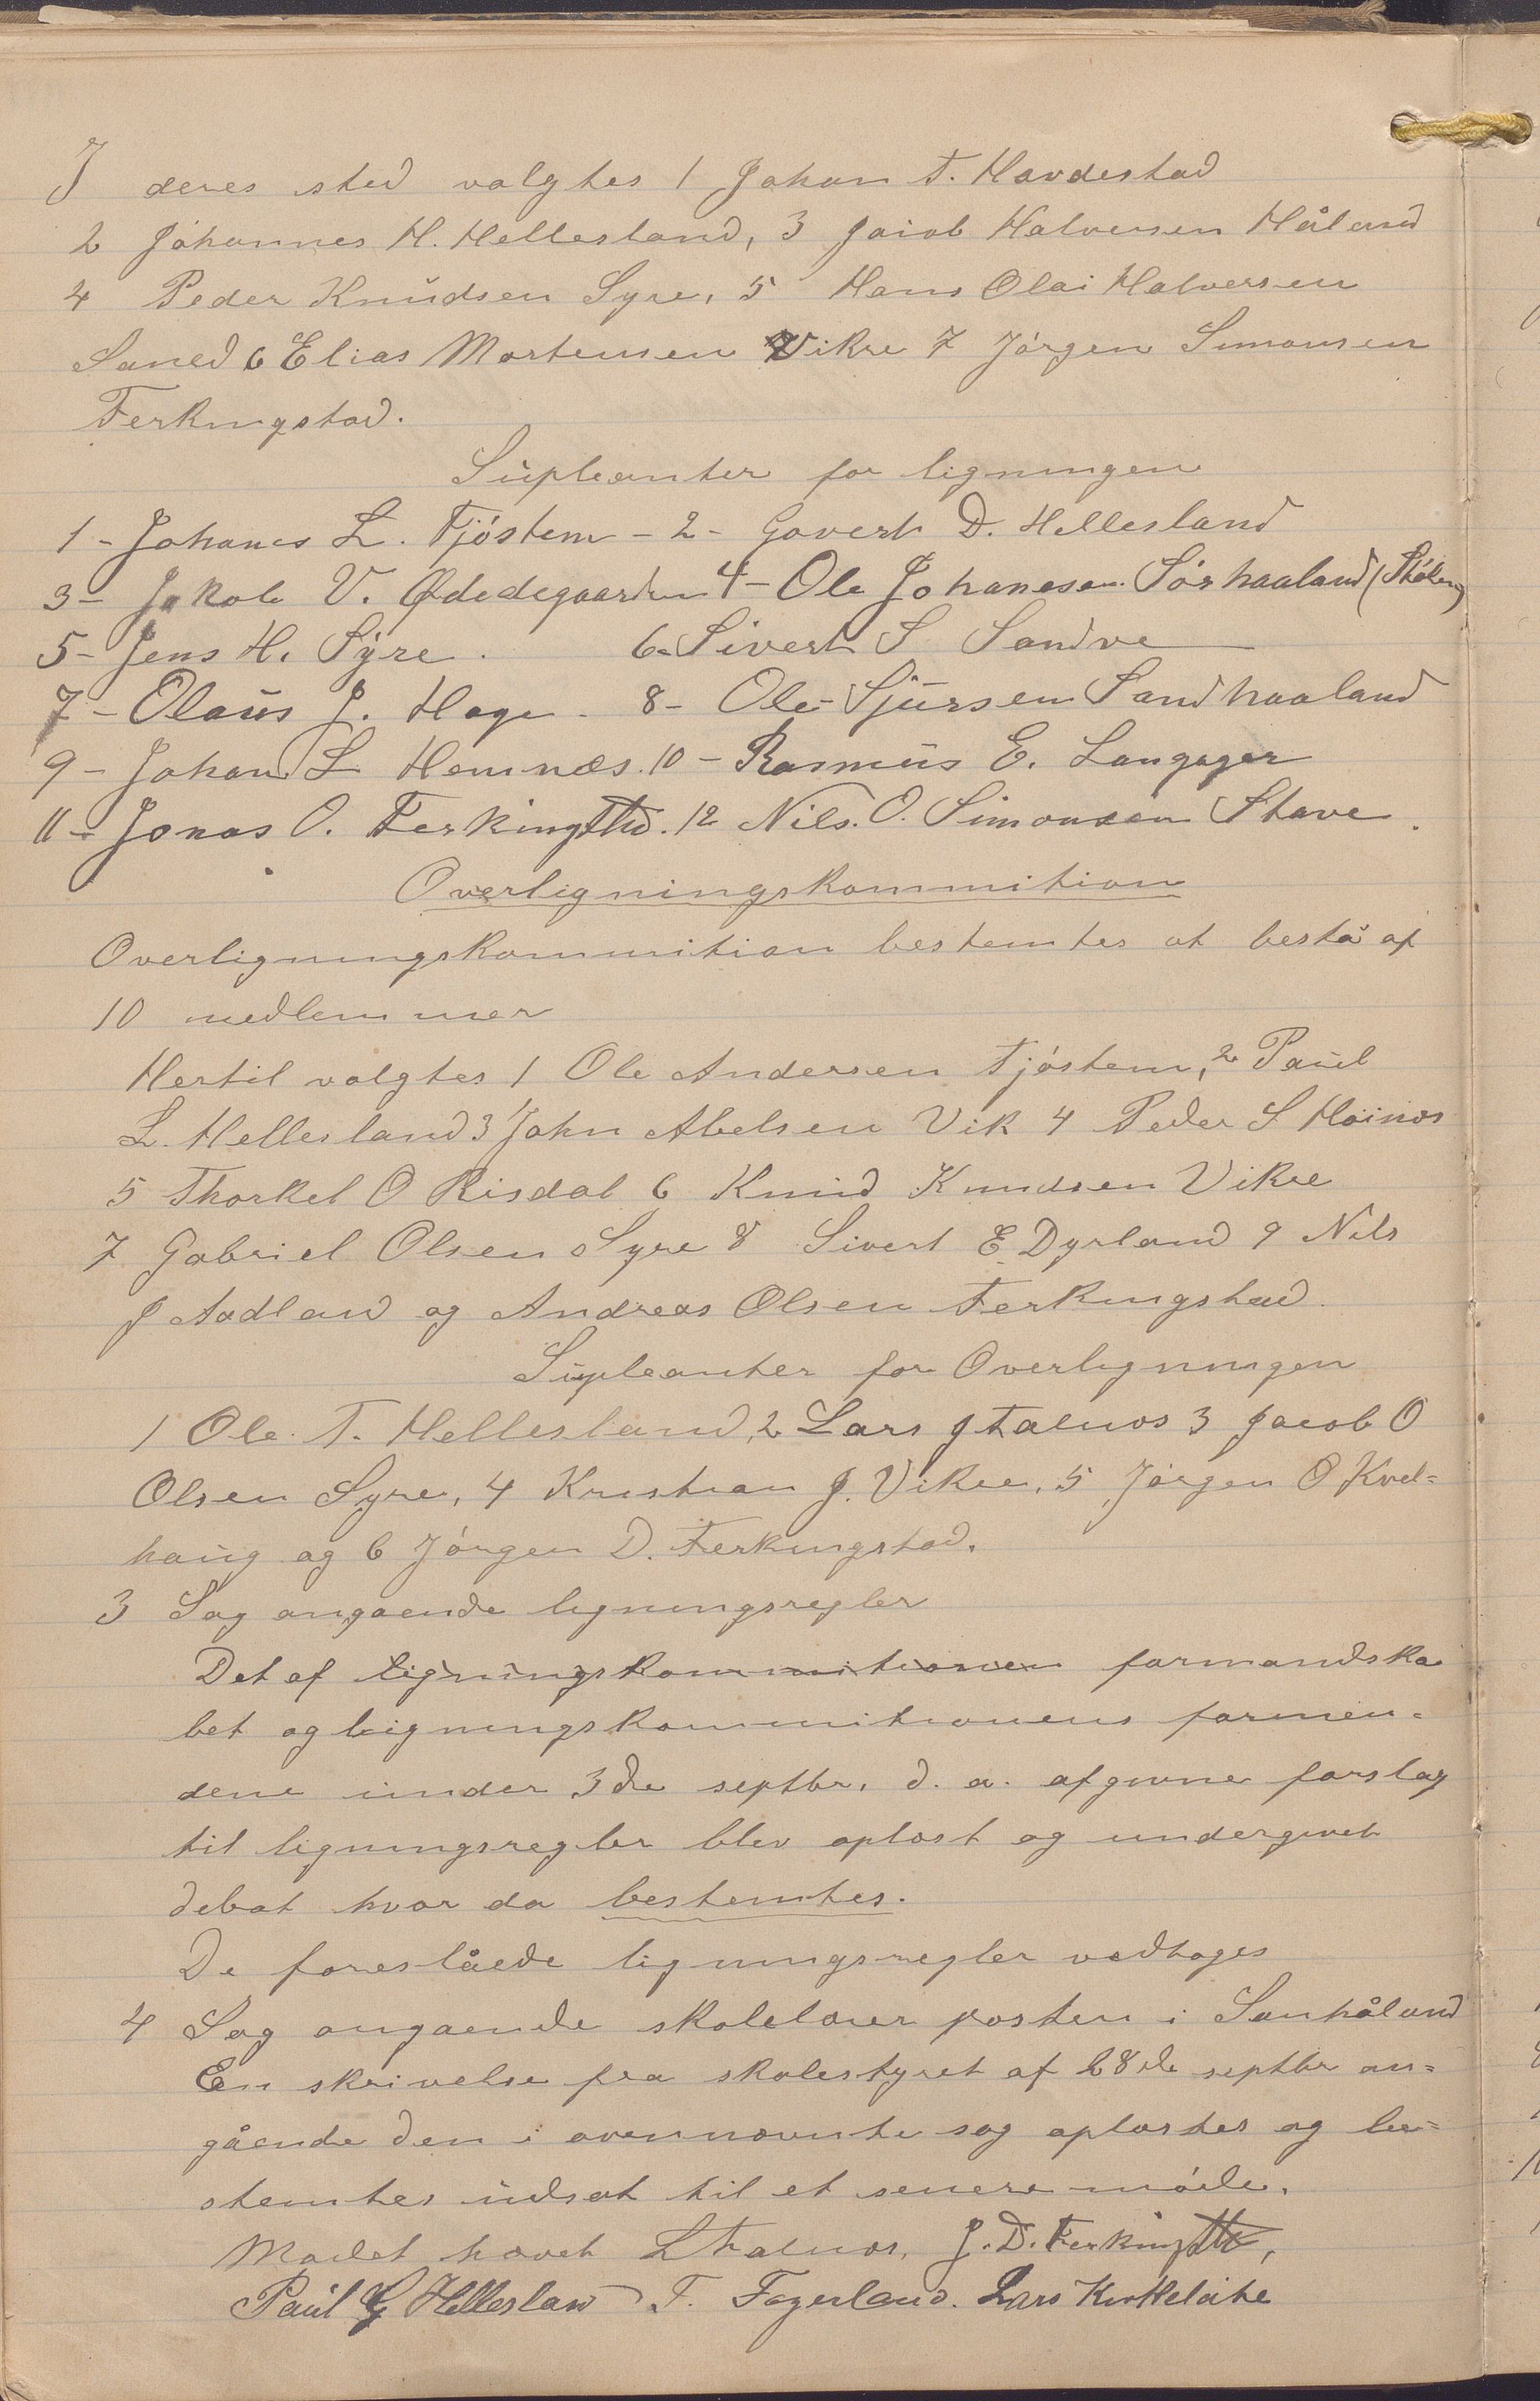 I deres sted valgtes 1 Johan T. Havdestad
2 Johannes H. Hellesland, 3 Jacob Halversen Håland
4 Peder Knudsen Syre, 5 Hans Olai Halversen
Saned 6 Elias Mortensen Vikre 7 Jórgen Simonsen
Ferkingstad.
Supleanter for ligningen
1 - Johanes L. Tjóstem - 2 - Govert D. Hellesland
3 - Jakob V. Ødedegaarden 4 - Ole Johanesen Sórhaaland (Stólen)
5 - Jens H. Syre. 6. Sivert S Sandve
7 - Olaus J. Hage - 8 - Ole Sjursen Sandhaaland
9 - Johan L Hemnæs. 10 - Rasmus E. Langager
11 - Jonas O. Ferkingstd. 12 Nils. O. Simonsen Stave.
Overligningskommition
Overligningskommition bestemtes at bestå af
10 medlemmer
Hertil valgtes 1 Ole Andersen Tjóstem, 2 Paul
L. Hellesland 3 John Abelsen Vik 4 Peder S Høinæs
5 Thorkel O Risdal 6 Knud Knudsen Vikre
7 Gabriel Olsen Syre 8 Sivert E. Dyrland 9 Nils
J Aadland og Andreas Olsen Ferkingstad.
Supleanter for Overligningen
1 Ole T. Hellesland, 2 Lars J Falnæs 3 Jacob O
Olsen Syre, 4 Kristian J. Vikre, 5 Jórgen O Kvel=
haug og 6 Jórgen D. Ferkingstad.
3 Sag angaende ligningsregler
Det af ligningskommitionen formandska
bet og ligningskommitionens formen=
dene under 3de septbr. d. a. afgivne forslag
til ligningsregler blev oplæst og undergivet
debat hvor da bestemtes.
De foreslåede ligningsregler vedtoges
4 Sag angaende skolelærer posten i Sanhåland
En skrivelse fra skolestyret af 28de septbr an=
gående den i ovennævnte sag oplæstes og be=
stemtes udsat til et senere móde.
Mødet hævet L Falnæs, J. D. Ferkingstd,
Paul G Hellesland T. Fagerland. Lars Kr